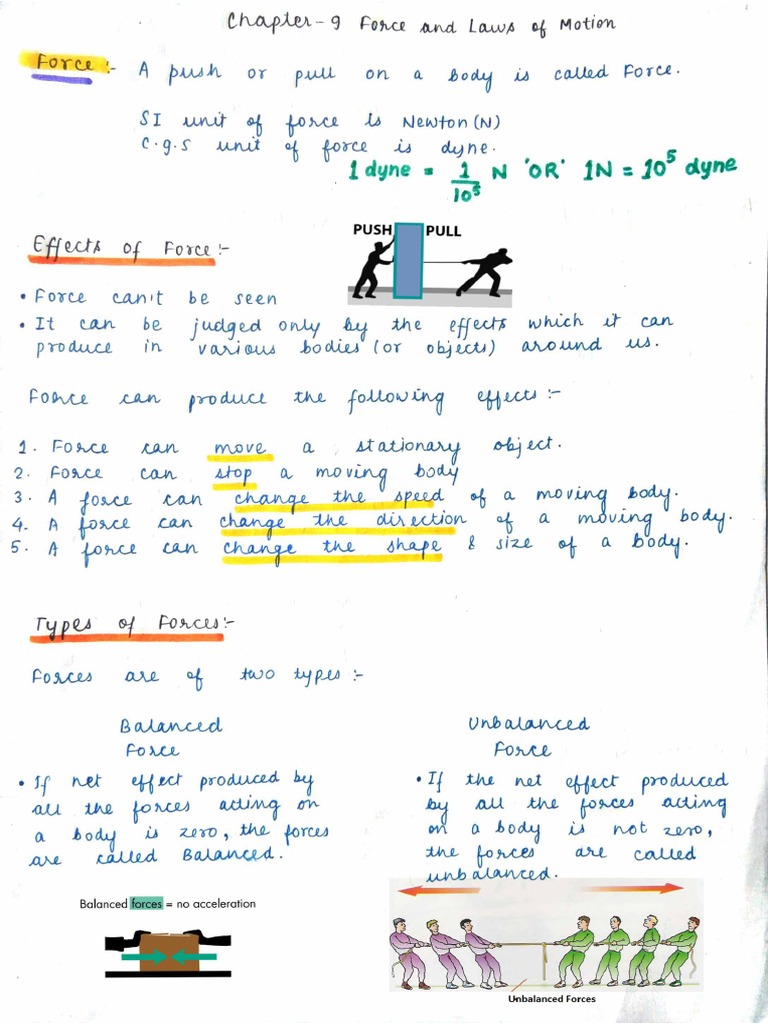 Chapter-9 Force and Laws of Motion
Force :- A push or pull on a body is called Force.
SI unit of force is Newton (N)
C.g.s unit of force is dyne.
1 dyne = 1/10⁵ N 'OR' 1N = 10⁵ dyne
Effects of Force:-
PUSH PULL
• Force can't be seen
• It can be judged only by the effects which it can
produce in various bodies (or objects) around us.
Force can produce the following effects:-
1. Force can move a stationary object.
2. Force can stop a moving body
3. A force can change the speed of a moving body.
4. A force can change the direction of a moving body.
5. A force can change the shape & size of a body.
Types of Forces:-
Forces are of two types:-
Balanced
Force
• If net effect produced by
all the forces acting on
a body is zero, the forces
are called Balanced.
Balanced forces = no acceleration
Unbalanced
Force
• If the net effect produced
by all the forces acting
on a body is not zero,
the forces are called
unbalanced.
Unbalanced Forces